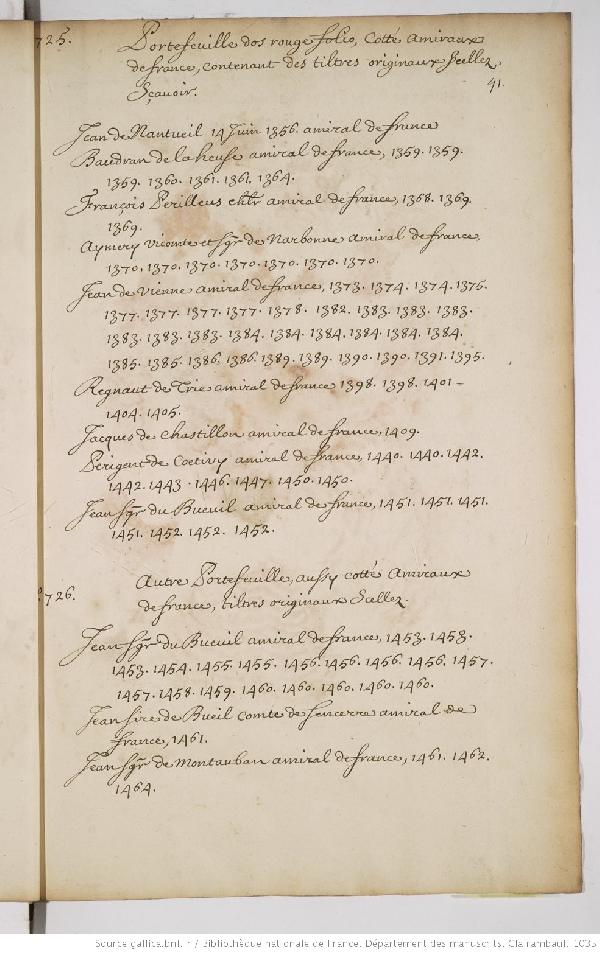 725. Portefeuille dos rouge folio, Cotté Amiraux
de france, contenant des tiltres originaux Scellez,
Sçavoir.
41.
Jean de Nantueil 14 Juin 1356. amiral de france
Baudran de la heuse amiral de france, 1359. 1359.
1359. 1360. 1361. 1361. 1364.
François Perilleus chlr amiral de france, 1368. 1369.
1369.
Aymery Vicomte et Sgr de Narbonne amiral de france,
1370. 1370. 1370. 1370. 1370. 1370. 1370.
Jean de Vienne amiral de france, 1373. 1374. 1374. 1375.
1377. 1377. 1377. 1377. 1378. 1382. 1383. 1383. 1383.
1383. 1383. 1383. 1384. 1384. 1384. 1384. 1384. 1384.
1385. 1385. 1386. 1386. 1389. 1389. 1390. 1390. 1391. 1395.
Regnaut de Trie amiral de france 1398. 1398. 1401 -
1404. 1405.
Jacques de Chastillon amiral de france, 1409.
Perigent de Coetivy amiral de france, 1440. 1440. 1442.
1442. 1443. 1446. 1447. 1450. 1450.
Jean Sgr du Bueuil amiral de france, 1451. 1451. 1451.
1451. 1452. 1452. 1452.
726. Autre Portefeuille, aussy cotté Amiraux
de france, tiltres originaux Scellez.
Jean Sgr du Bueuil amiral de france, 1453. 1453.
1453. 1454. 1455. 1455. 1456. 1456. 1456. 1456. 1457.
1457. 1458. 1459. 1460. 1460. 1460. 1460. 1460.
Jean Sire de Bueil comte de Sencerre amiral de
france, 1461.
Jean Sgr de Montauban amiral de france, 1461. 1462.
1464.
Source gallica.bnf.fr / Bibliothèque nationale de France. Département des manuscrits. Clairambault 1035